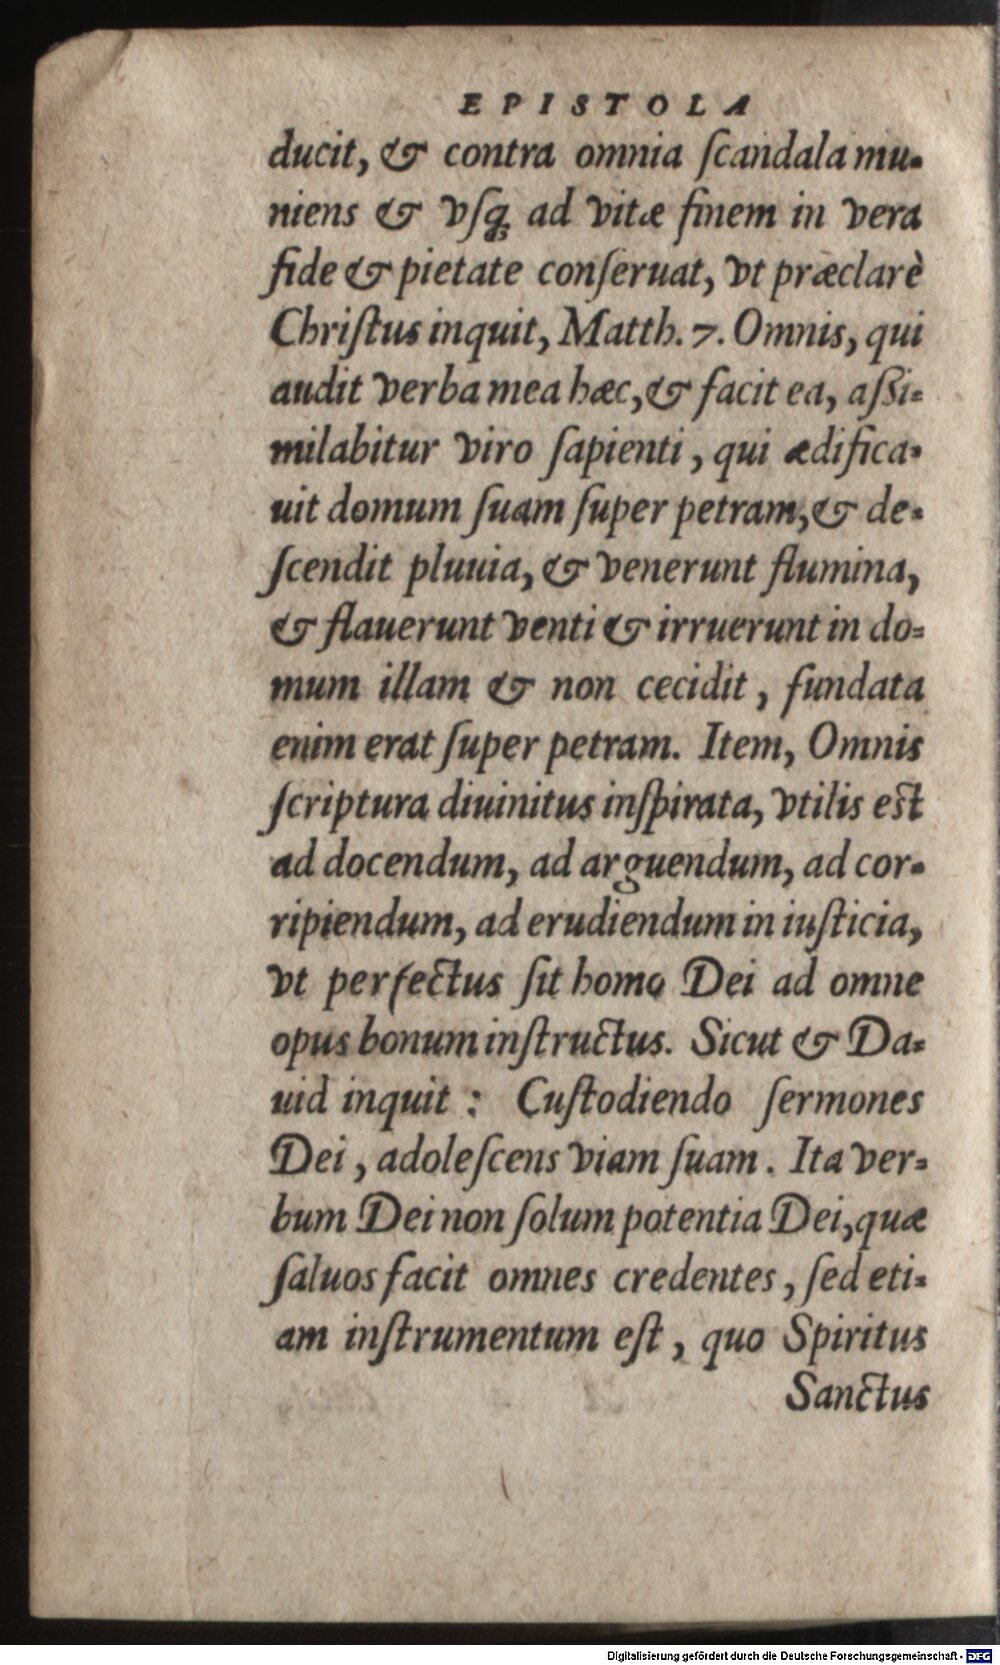 EPISTOLA
ducit, & contra omnia ſcandala mu-
niens & vſq; ad vitæ finem in vera
fide & pietate conſeruat, vt præclarè
Chriſtus inquit, Matth. 7. Omnis, qui
audit verba mea hæc, & facit ea, aſsi-
milabitur viro ſapienti, qui ædifica-
uit domum ſuam ſuper petram, & de-
ſcendit pluuia, & venerunt flumina,
& flauerunt venti & irruerunt in do-
mum illam & non cecidit, fundata
enim erat ſuper petram. Item, Omnis
ſcriptura diuinitus inſpirata, vtilis est
ad docendum, ad arguendum, ad cor-
ripiendum, ad erudiendum in iuſticia,
vt perfectus ſit homo Dei ad omne
opus bonum inſtructus. Sicut & Da-
uid inquit: Cuſtodiendo ſermones
Dei, adoleſcens viam ſuam. Ita ver-
bum Dei non ſolum potentia Dei, quæ
ſaluos facit omnes credentes, ſed eti-
am inſtrumentum eſt, quo Spiritus
Sanctus
Digitalisierung gefördert durch die Deutsche Forschungsgemeinschaft - DFG